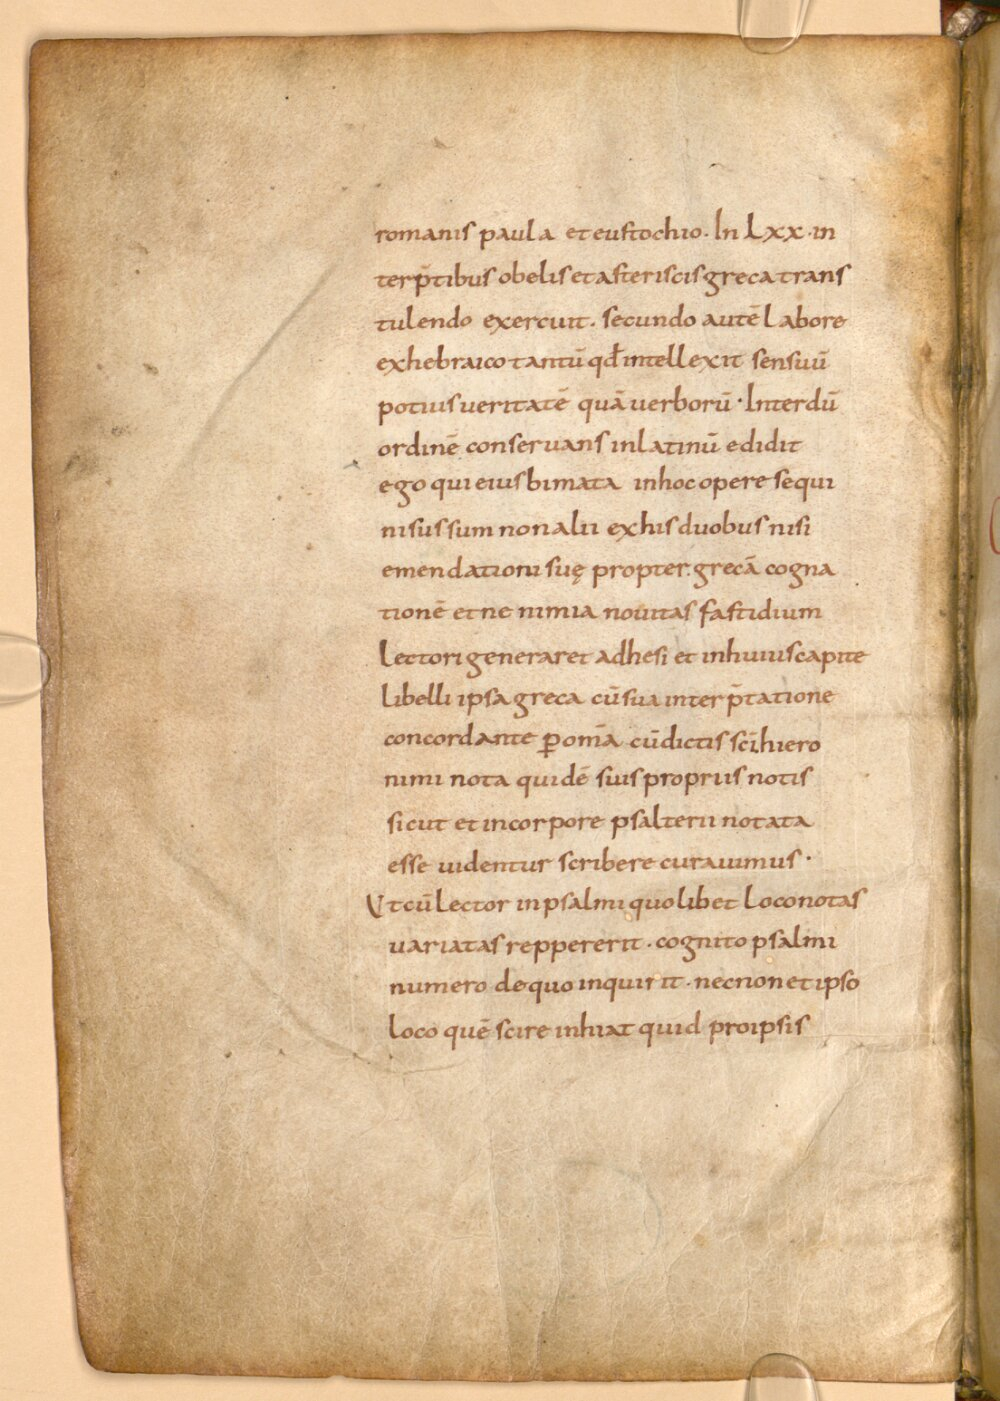 romanis paula et eustochio. In Lxx. in
terp̄tibus obelis et asteriscis greca trans
tulendo exercuit. secundo autē labore
exhebraico tantū qđ intellexit sensuū
potius ueritatē quā uerborū. Interdū
ordinē conseruans in latinū edidit
ego qui eius bimata inhoc opere sequi
nisus sum non alii exhis duobus nisi
emendationi suę propter grecā cogna
tionē et ne nimia nouitas fastidium
lectori generaret adhesi et inhuius capite
libelli ipsa greca cū sua interp̄tatione
concordante ꝑ om̄a cū dictis sc̄i hiero
nimi nota quidē suis propriis notis
sicut et incorpore psalterii notata
esse uidentur scribere curauimus.
Ut cū lector in psalmi quolibet loco notas
uariatas reppererit. cognito psalmi
numero de quo inquirit. necnon et ipso
loco quē scire inhiat quid proipsis